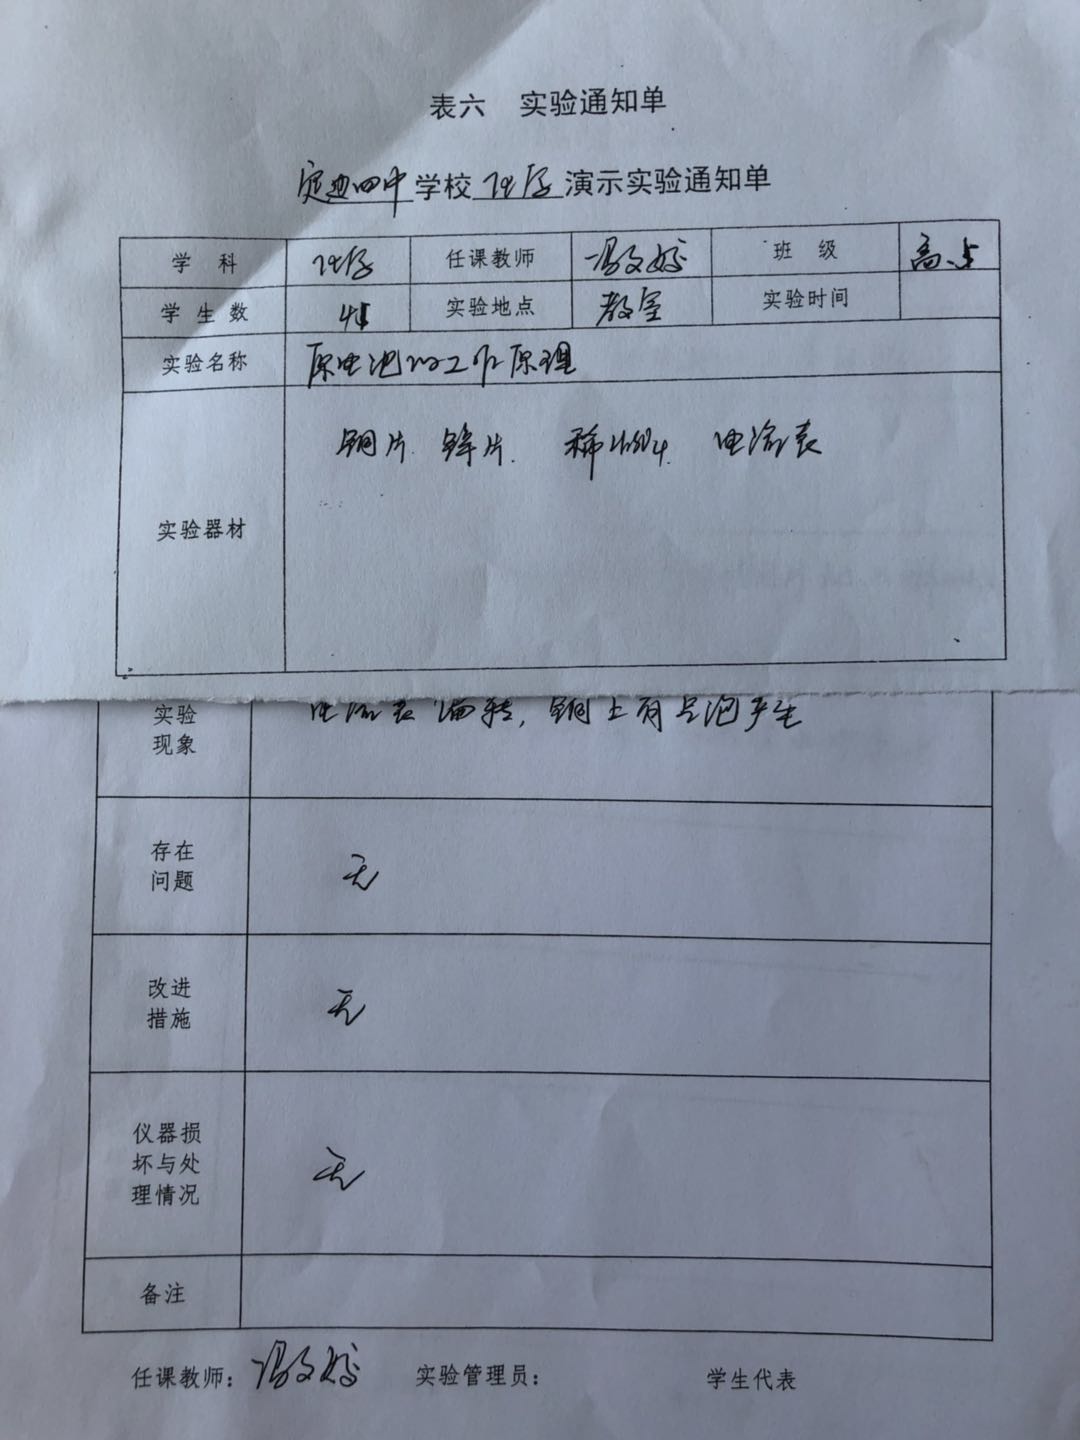 表六 实验通知单
定边四中学校化学演示实验通知单
学 科 化学 任课教师 冯文姣 班 级 高
学 生 数 实验地点 教室 实验时间
实验名称 原电池的工作原理
铜片 锌片. 稀H2SO4. 电流表
实验器材
实验 电流表偏转,铜上有气泡产生
现象
存在
问题 无
改进
措施 无
仪器损
坏与处 无
理情况
备注
任课教师: 冯文姣 实验管理员: 学生代表